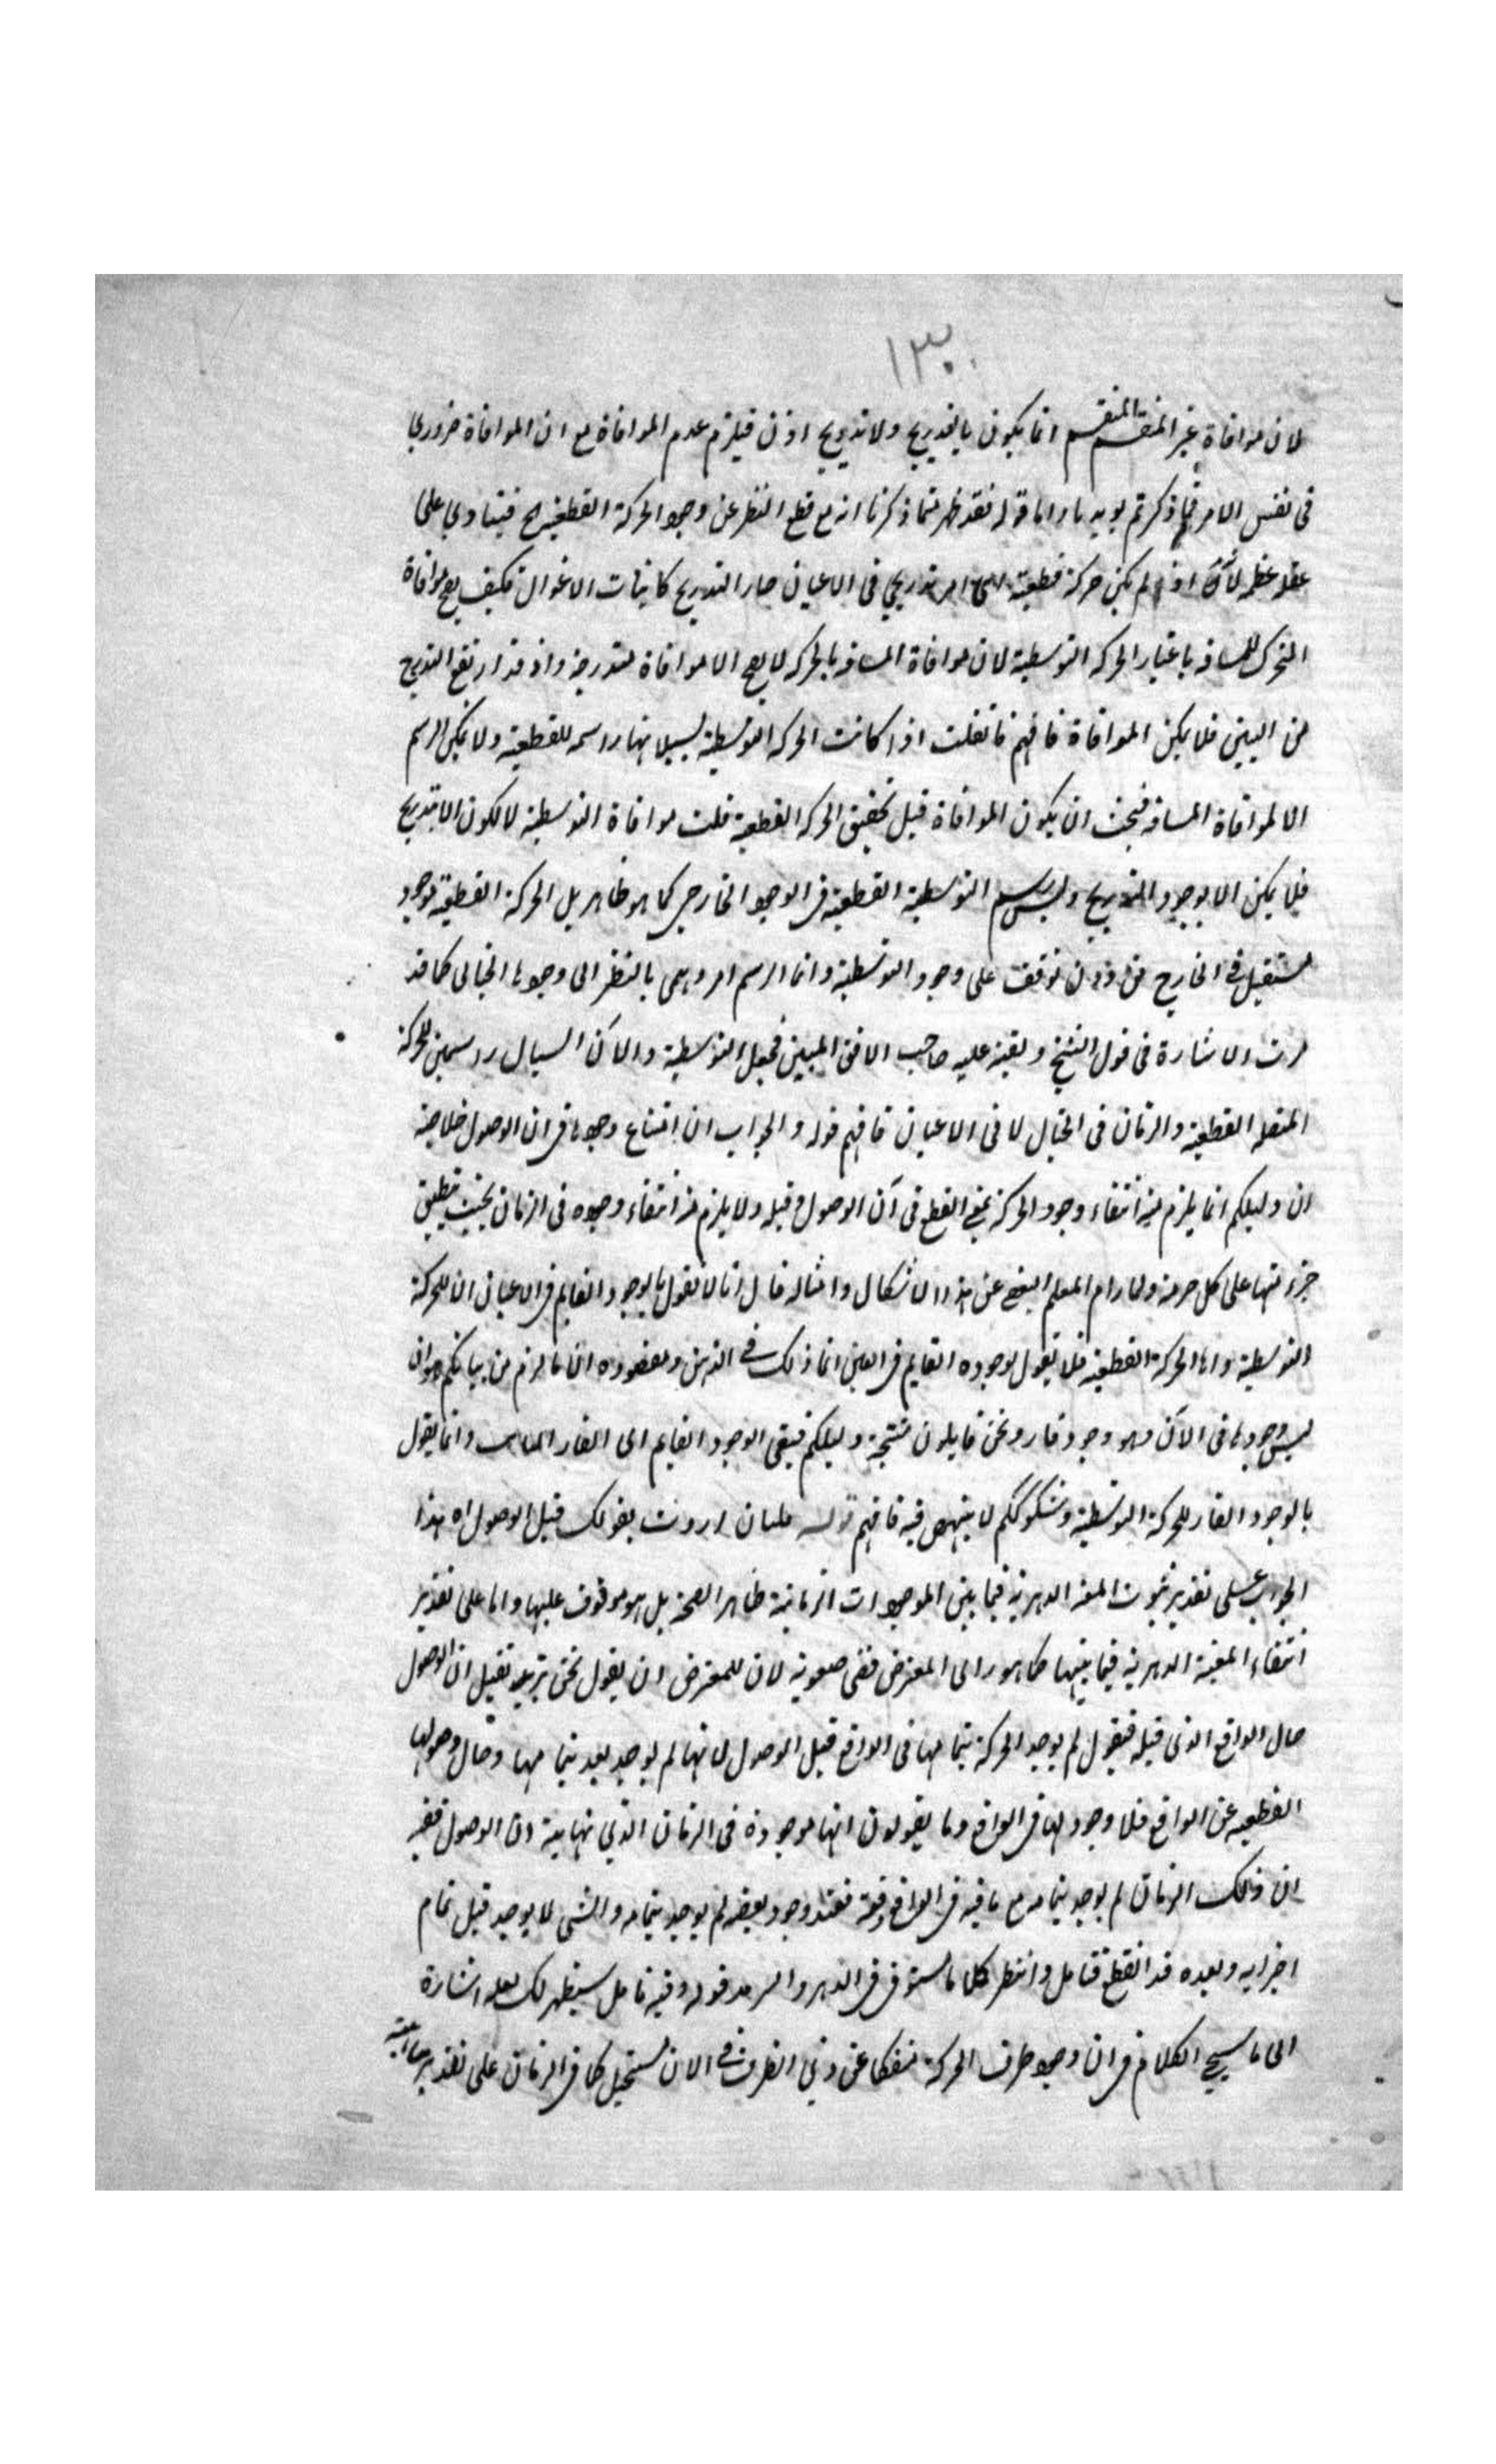 ١٣٠
لان موافاة غير المنقسم المنقسم انما يكون بالتدريج ولا تدريج اذن فيلزم عدم الموافاة مع ان الموافاة ضروري
فى نفس الامر فما ذكرتم بويه ما واما قوله فقد ظهر مما ذكرنا انه مع قطع النظر عن وجود الحركة القطعية الخ فينادي على
اذا لم يكن حركة قطعية امر تدريجي فى الاعيان صار التدريج كانياب الاغوال فكيف يصح موافاة
المتحرك للمسافه باعتبار الحركه التوسطية لان موافاة المسافه بالحركه لا يصح الا موافاة متدرجة واذ قد ارتفع التدريج
من البين فلا يمكن الموافاة فافهم فان قلت اذا كانت الحركه التوسطية بسيلانها راسمه للقطعية ولا يمكن الرسم
الا لموافاة المسافه فيجب ان يكون الموافاة قبل تحقيق الحركه القطعية قلت موافاة التوسطية لا يكون الا بتدريج
فلا يمكن الا بوجود التدريج وليس رسم التوسطية القطعية فى الوجود الخارجى كما هو ظاهر بل الحركة القطعية موجود
مستقيل فى الخارج من دون توقف على وجود التوسطية وانما الرسم امر وهمى بالنظر الى وجودها الخيالى كما قد
مرت الاشارة فى قول الشيخ وبقيه عليه صاحب الافق المبين فجعل التوسطية والآن السيال راسمين للحركة
المتصله القطعية والزمان فى الخيال لا فى الاعيان فافهم قوله والجواب ان امتناع وجودها فى ان الوصول خلاصة
ان دليلكم انما يلزم منه انتفاء وجود الحركة بمعنى القطع فى آن الوصول وقبله ولا يلزم منه انتفاء وجوده فى الزمان بحيث ينطبق
جزء منها على كل جزء منه ولما رام المعلم التفصى عن هذا الاشكال وامثاله قال انا لا نقول بالوجود القايم فى الاعيان الا للحركة
التوسطية واما الحركة القطعية فلا نقول بوجوده القايم فى العين انما ذلك فى الذهن ومقصوده ان ما لزم من بيانكم هو ان
ليس وجودها فى الآن وهو وجود قار ونحن قايلون بنتيجة دليلكم فينفى الوجود القايم اى القار وانما يقول
بالوجود القار للحركة التوسطية وشكوككم لا ينتهض فيه فافهم قوله فان اردت بقولك قبل الوصول اه هذا
الجواب على تقدير ثبوت المعية الدهرية فيما بين الموجودات الزمانية ظاهر الصحة بل هو موقوف عليها واما على تقدير
انتفاء المعية الدهرية فيما بينها كما هو راى المعترض ففى صعوبة لان للمعترض ان يقول نحن نريد بقبل ان الوصول
حال الواقع الذى قبله فنقول لم يوجد الحركة بتمامها فى الواقع قبل الوصول لانها لم يوجد بعد بتمامها وحال وصولها
القطعيه عن الواقع فلا وجود لها فى الواقع وما يقولون انها موجودة فى الزمان الذي نهايته ان الوصول ففيه
ان ذلك الزمان لم يوجد بتمامه مع ما فيه فى الواقع دفعة فعند وجود بعضه لم يوجد بتمامه والشى لا يوجد قبل تمام
اجزايه وبعده قد انقطع فتامل وانتظر كلاما مستوفى فى الدهر والسرمد قوله وفيه تامل سيظهر لك لعله اشارة
الى ما سيجي الكلام فى ان وجود طرف الحركة منفكا عن ذي الطرف فى الان مستحيل كما فى الزمان على تقدير